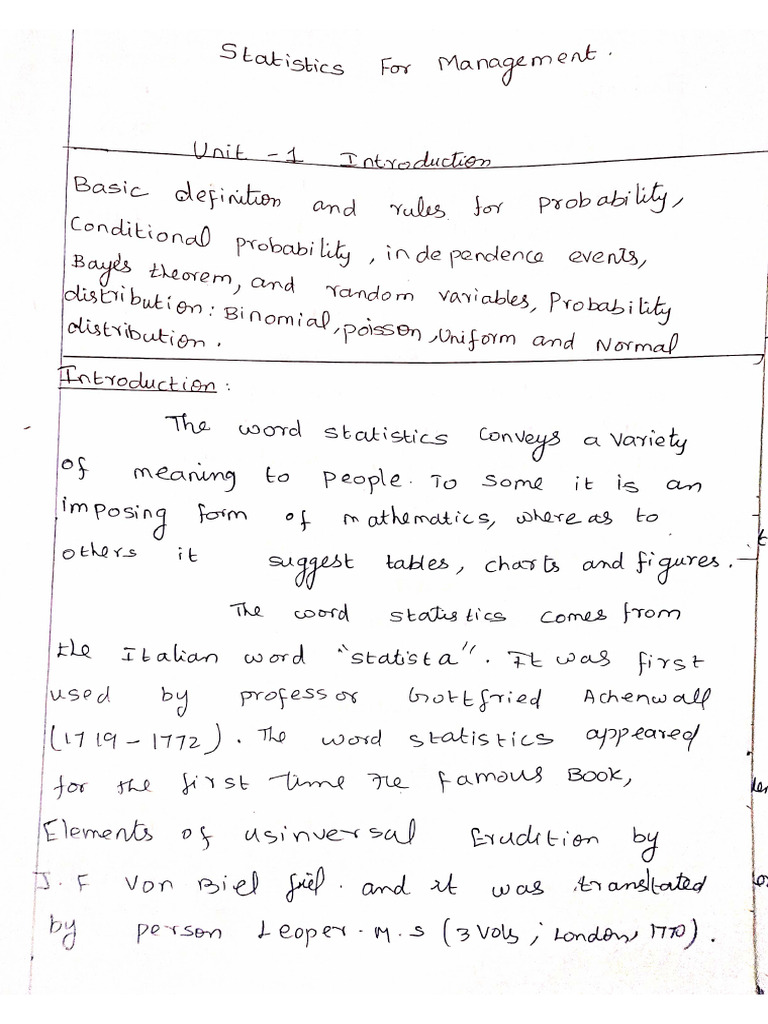 Statistics For Management.
Unit - 1 Introduction
Basic definition and rules for probability,
Conditional probability, independence events,
Baye's theorem, and random variables, Probability
distribution: Binomial, poisson, Uniform and Normal
distribution.
Introduction:
The word statistics conveys a variety
of meaning to people. To some it is an
imposing form of mathematics, where as to
others it suggest tables, charts and figures.
The word statistics comes from
the Italian word "statista". It was first
used by professor Gottfried Achenwall
(1719-1772). The word statistics appeared
for the first time the famous Book,
Elements of usinversal Erudition by
J. F Von Biel and it was translated
by person Leoper. M.s (3 Vols; London, 1770).